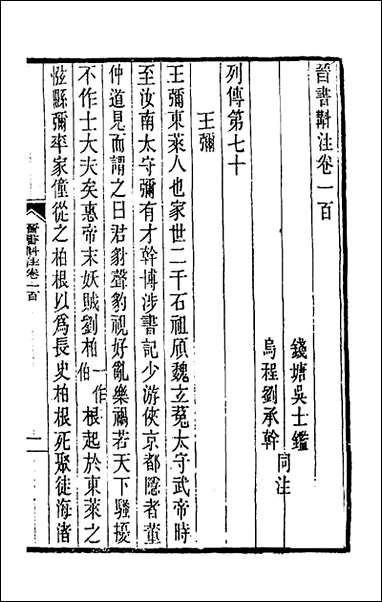 晉書斠注卷一百
錢塘吳士鑑
烏程劉承幹
同注
列傳第七十
王彌
王彌東萊人也家世二千石祖頎魏玄菟太守武帝時
至汝南太守彌有才幹博涉書記少游俠京都隱者董
仲道見而謂之曰君豺聲豹視好亂樂禍若天下騷擾
不作士大夫矣惠帝末妖賊劉柏一作伯根起於東萊之
㡉縣彌率家僮從之柏根以爲長史柏根死聚徒海渚
晉書斠注卷一百
一